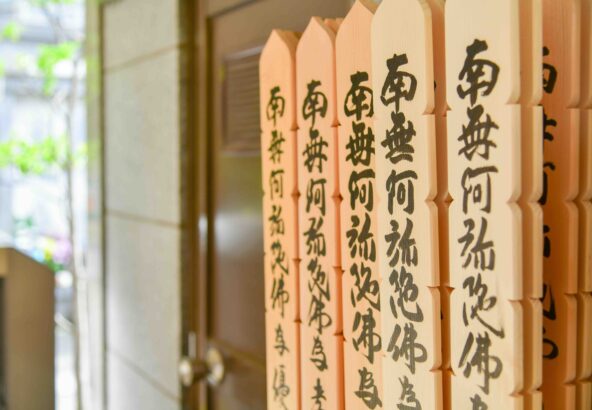 南無阿弥陀佛
南無阿弥陀佛為
南無阿弥陀佛為
南無阿弥陀佛為
南無阿弥陀佛為